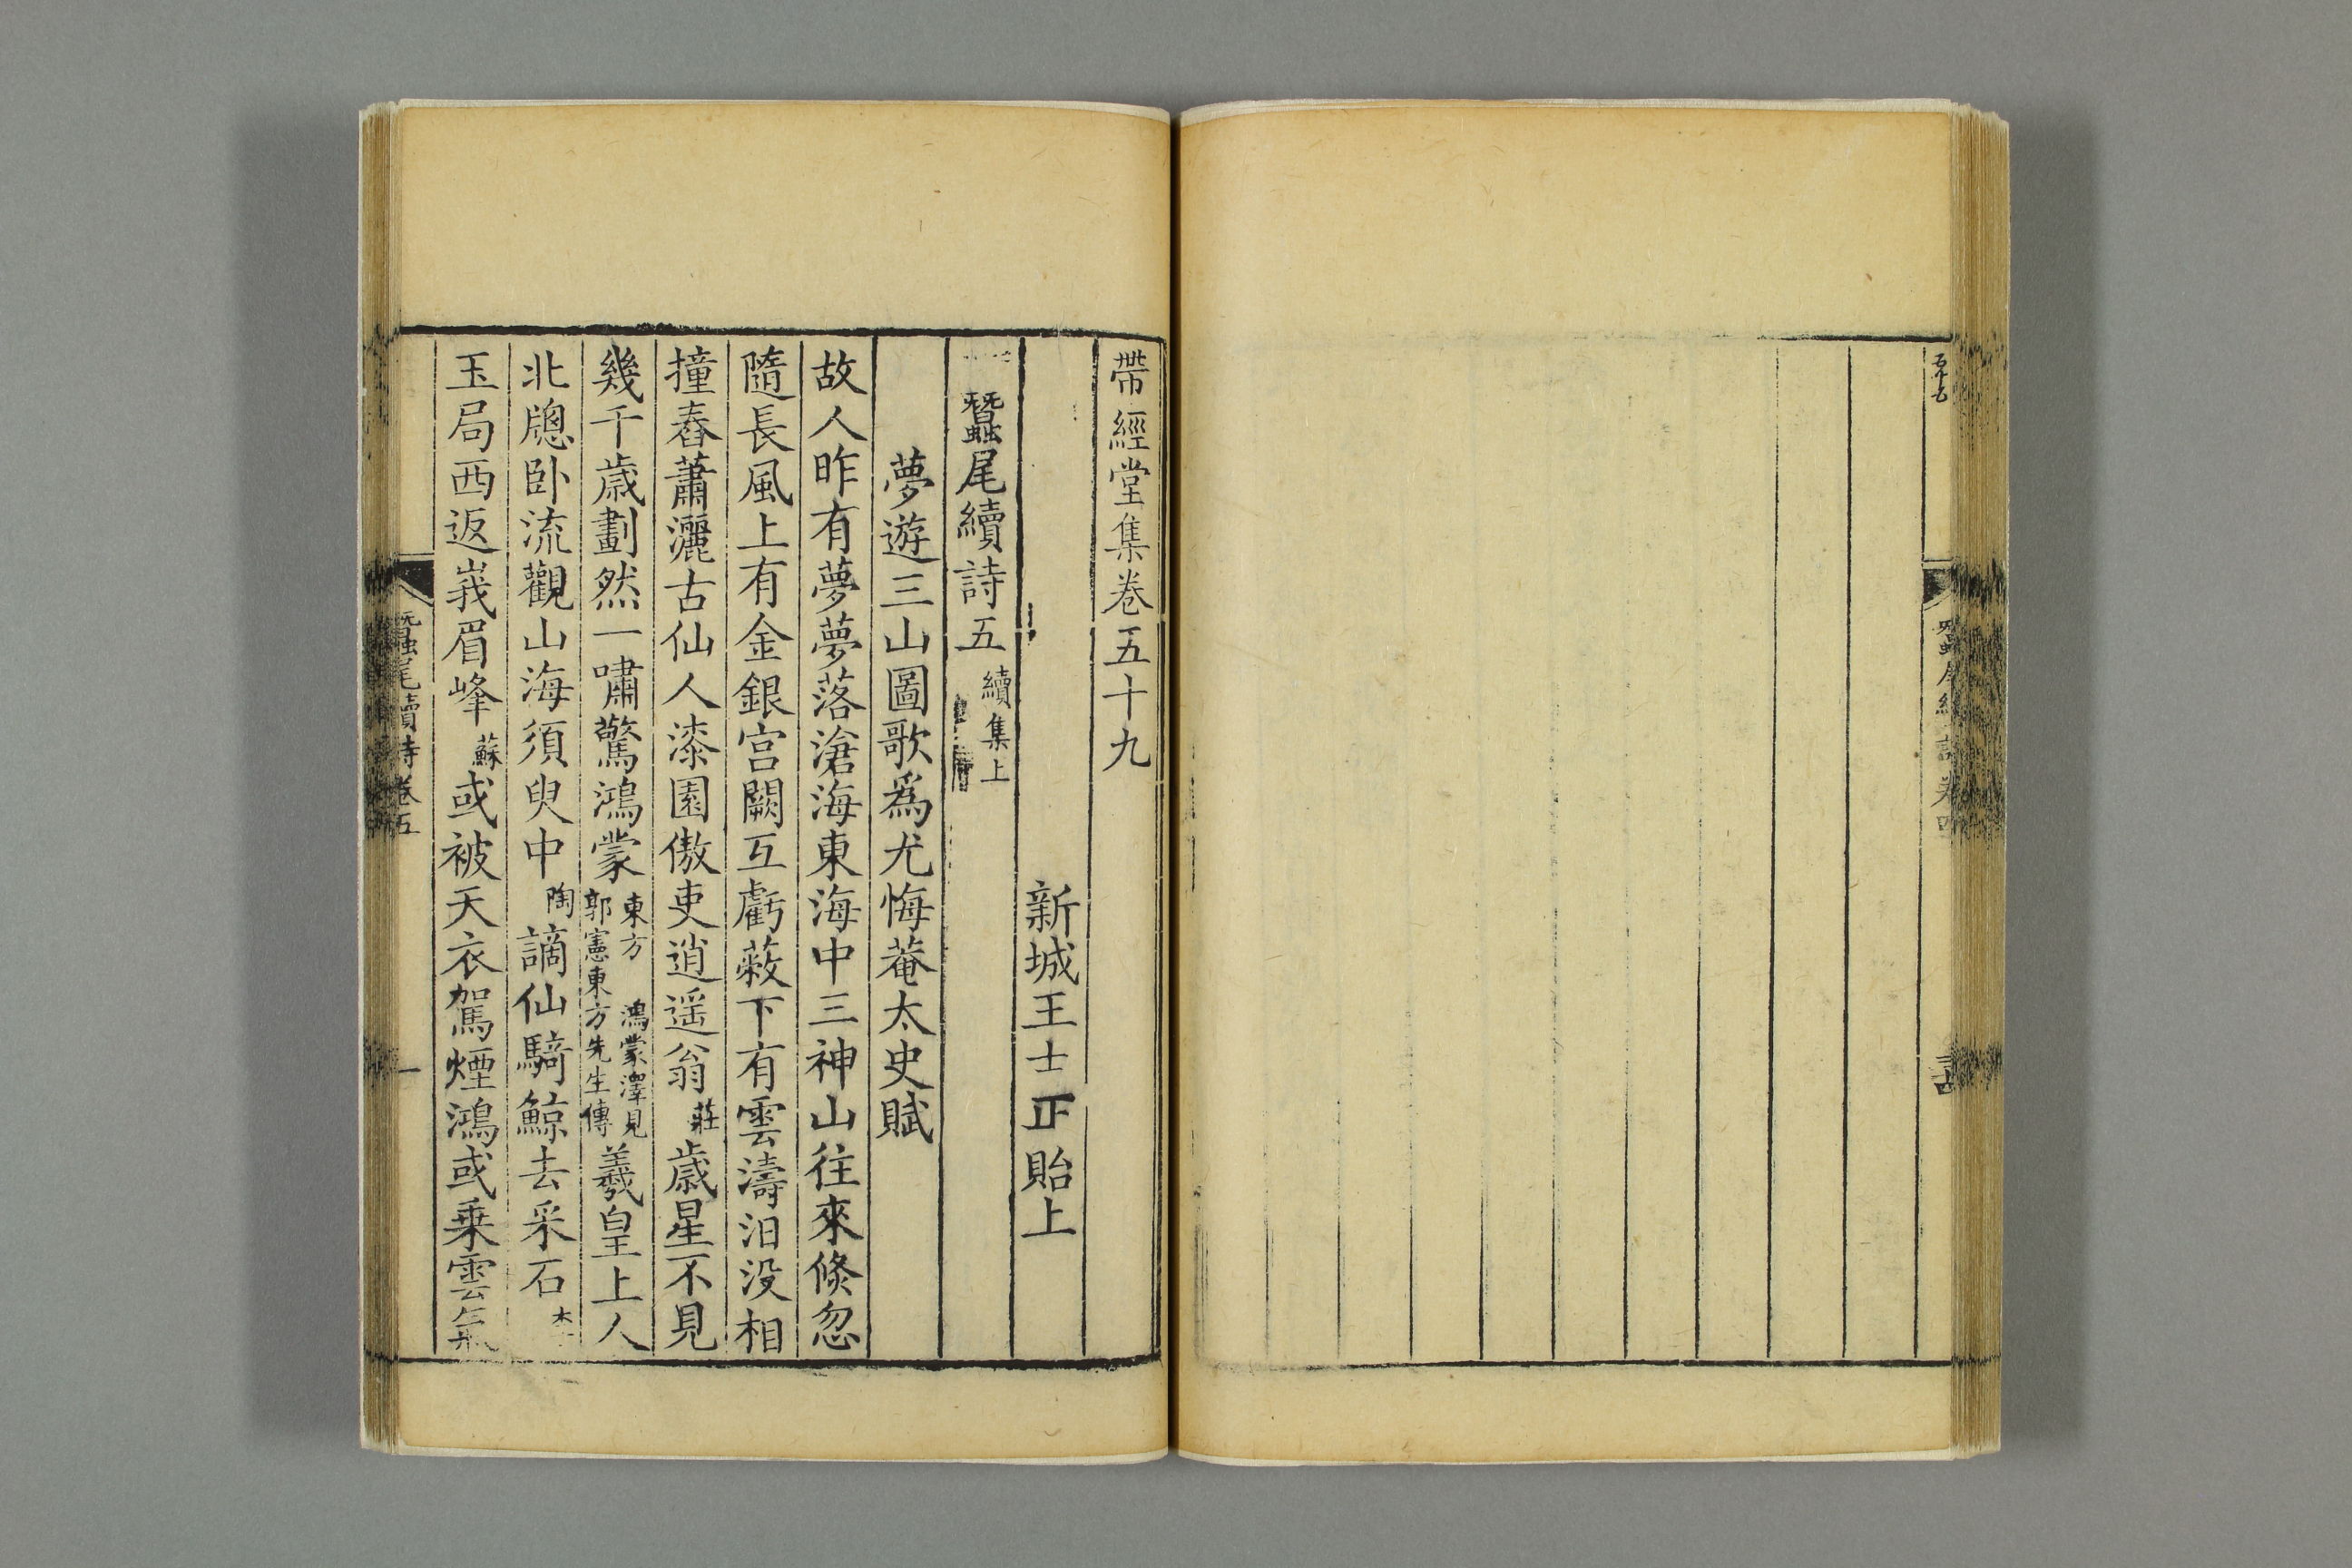 帶經堂集卷五十九
新城王士正貽上
蠶尾續詩五 續集上
夢遊三山圖歌爲尤悔菴太史賦
故人昨有夢夢落滄海東海中三神山往來倏忽
隨長風上有金銀宫闕互虧蔽下有雲濤汨没相
撞舂蕭灑古仙人漆園傲吏逍遥翁 莊 歲星不見
幾千歲劃然一嘯驚鴻蒙 東方 鴻蒙澤見郭憲東方先生傳 羲皇上人
北牕卧流觀山海須臾中 陶 謫仙騎鯨去采石 李
玉局西返峩眉峰 蘇 或被天衣駕煙鴻或乗雲氣
蠶尾續詩卷五
一